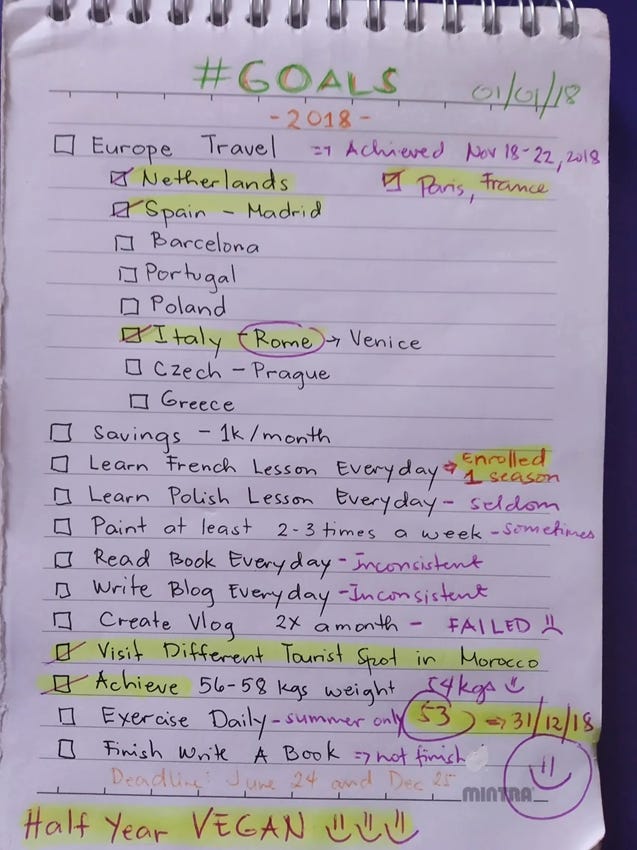 #GOALS 01/01/18
- 2018 -
Europe Travel => Achieved Nov 18-22, 2018
Netherlands Paris, France
Spain - Madrid
Barcelona
Portugal
Poland
Italy - Rome → Venice
Czech - Prague
Greece
Savings - 1k/month
Learn French Lesson Everyday → Enrolled 1 season
Learn Polish Lesson Everyday - seldom
Paint at least 2-3 times a week - sometimes
Read Book Everyday - Inconsistent
Write Blog Everyday - Inconsistent
Create Vlog 2X a month - FAILED
Visit Different Tourist Spot in Morocco
Achieve 56-58 kgs weight 54kgs
Exercise Daily - summer only 53 => 31/12/18
Finish Write A Book => not finish
Deadline: June 24 and Dec 25
MINTRA
Half Year VEGAN